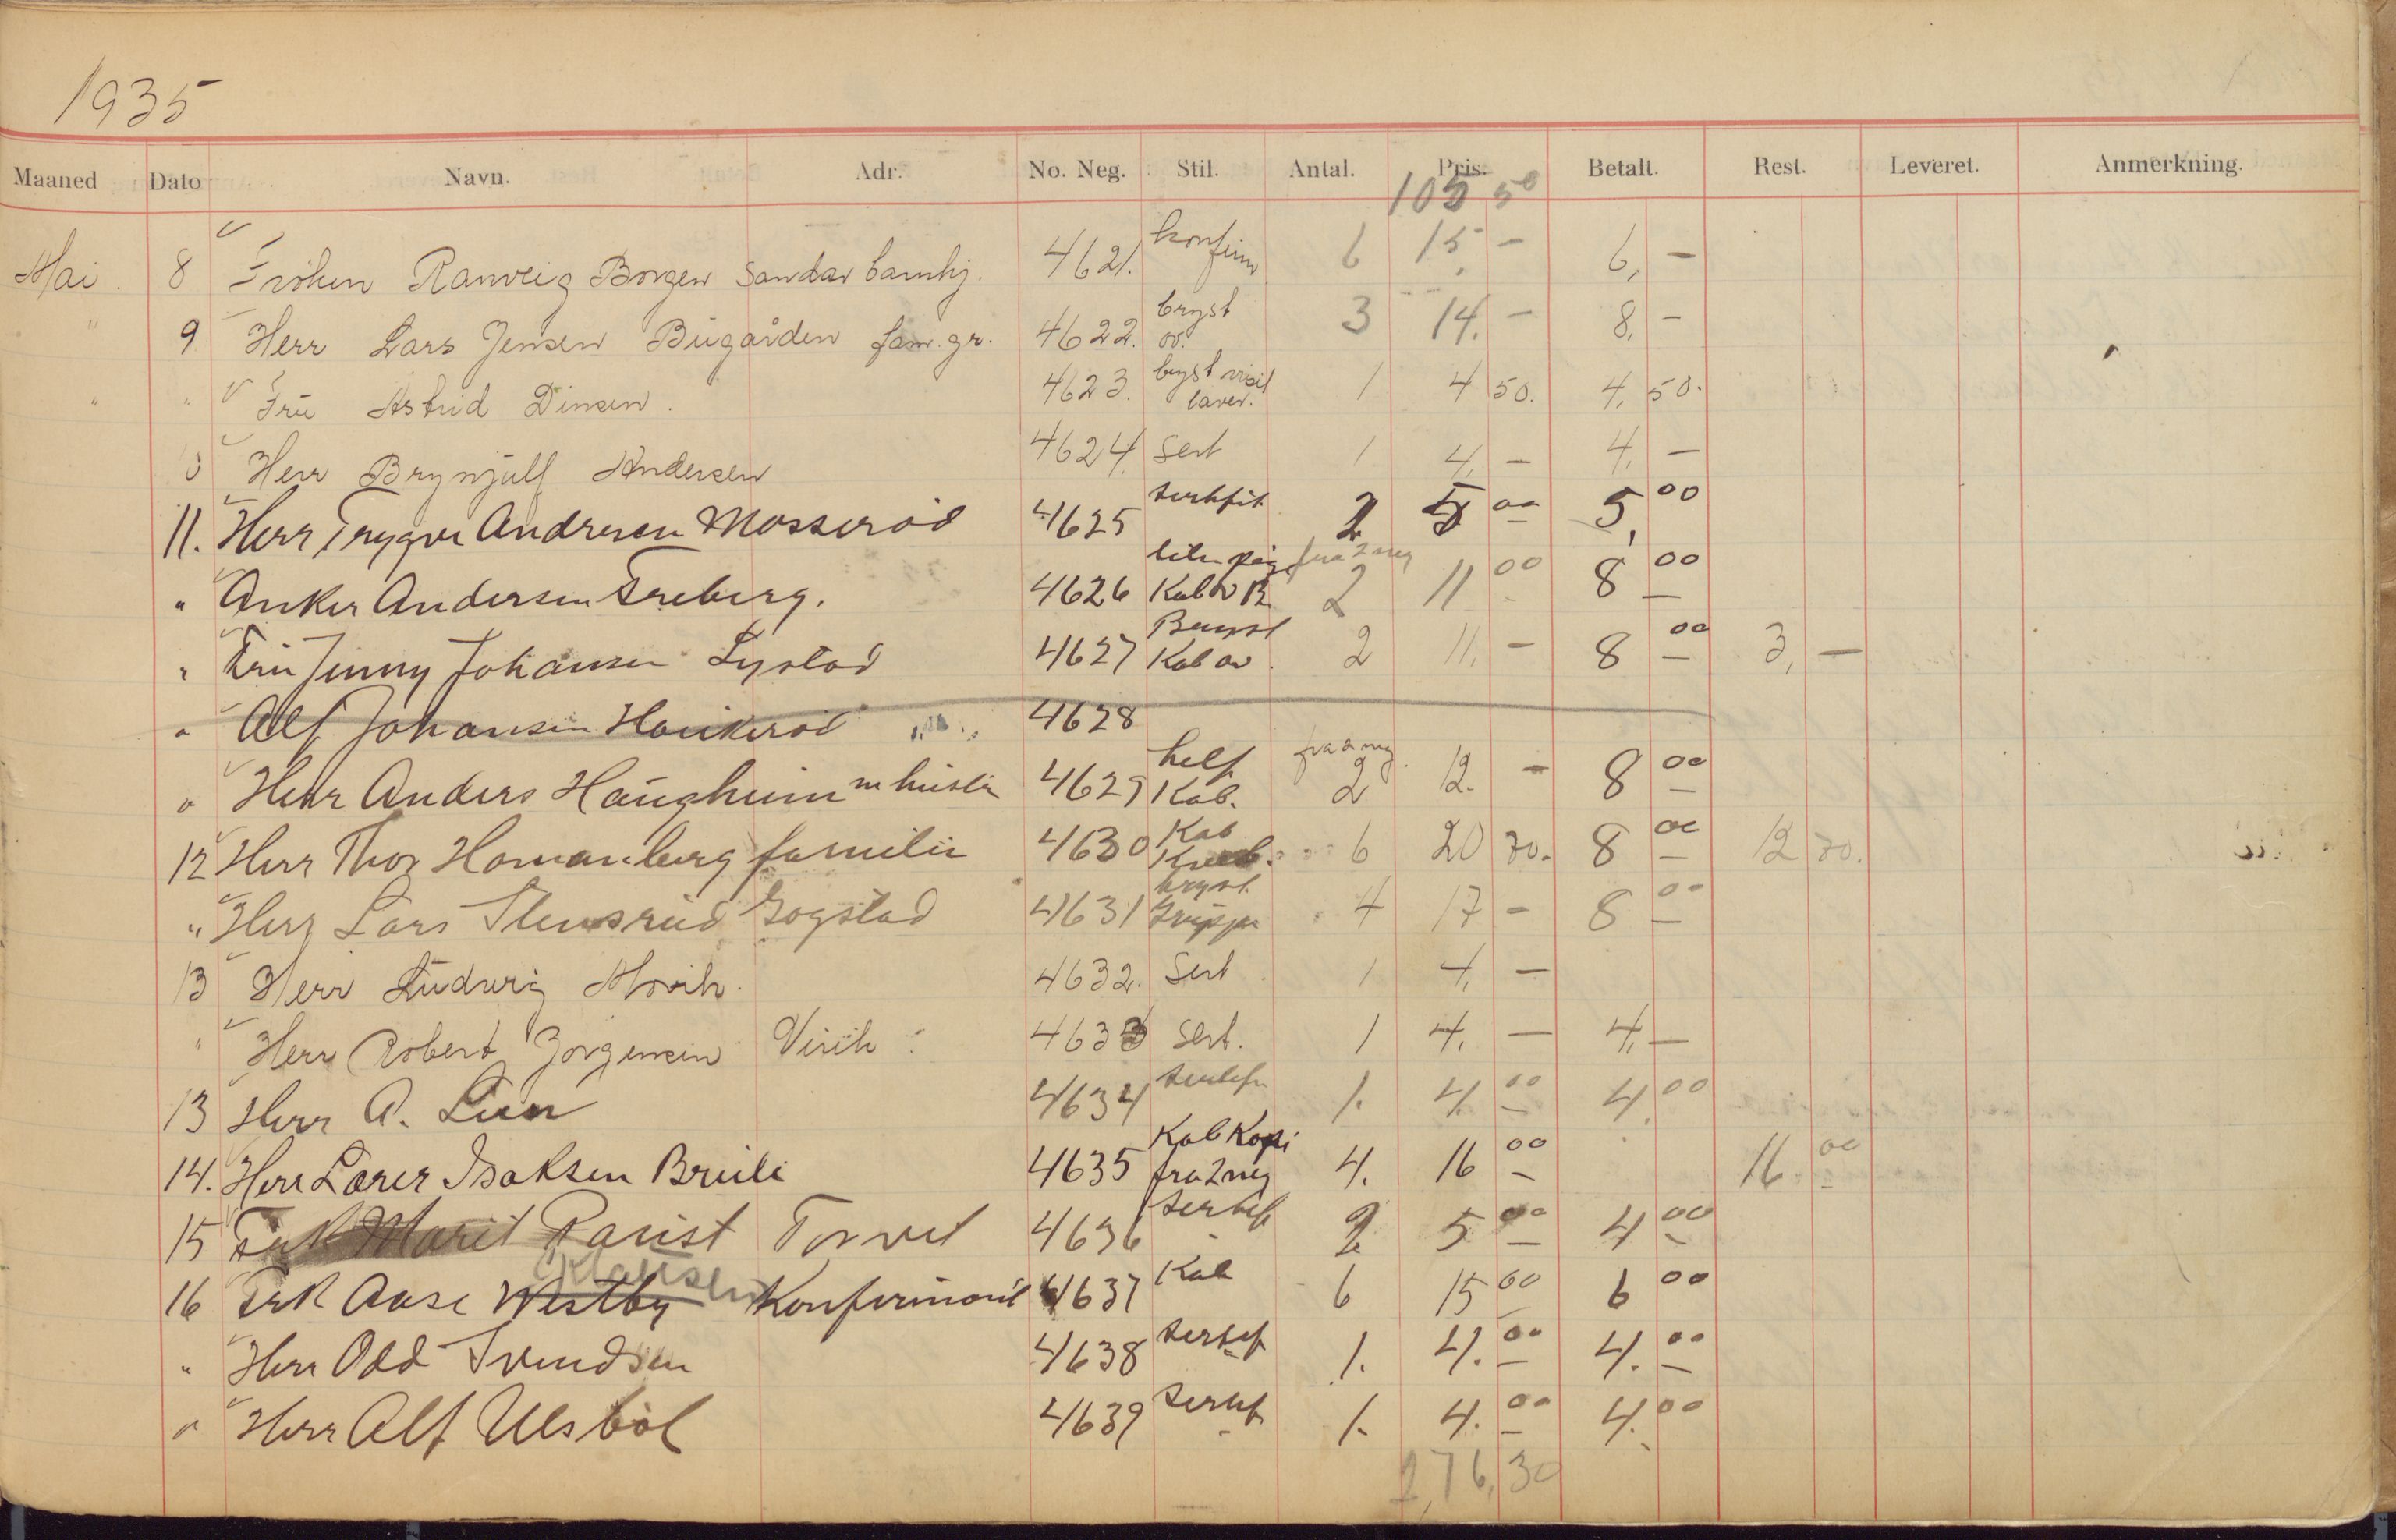 1935
Maaned Dato Navn. Adr. No. Neg. Stil. Antal. Pris. Betalt. Rest. Leveret. Anmerkning.
105 50
Mai. 8 Fröken Ranveig Borgen Sandar barnhj. 4621. konfirm 6 15, — 6, —
" 9 Herr Lars Jensen Bugården fam. gr. 4622. bryst ov. 3 14. — 8, —
" " Fru Astrid Dinsen. 4623. bryst visit laver. 1 4 50. 4, 50.
Herr Brynjulf Andersen 4624. Sert 1 4, — 4, —
11. Herr Trygve Andresen Mosserød 4625 2 5 00 5, 00
" Anker Andersen Freberg. 4626 fra 2 neg 2 11 00 8 00
" Fru Jenny Johansen Lystad 4627 Bryst Kab ov. 2 11, — 8 00 3, —
" Alf Johansen Haukerød 4628
" Herr Anders Haugheim m hustru 4629 helf Kab. fra 2 neg. 2 12. — 8 00
12 Herr Thor Homanberg familie 4630 Kab 6 20 70. 8 00 12 70.
" Herr Lars Stensrud Gogstad 4631 bryst Gruppe 4 17 — 8 00
13 Herr Ludwig 4632. Sert 1 4, —
" Herr Robert Jörgensen 4633 Sert. 1 4, — 4, —
13 Herr A. Lien 4634 1. 4. 00 4. 00
14. Herr Lærer Isaksen 4635 Kab Kopi fra 2 neg 4. 16 00 16. 00
15 Frk Marit Torvet 4636 2 5 00 4 00
Klausen
16 Frk Aase Westby Konfirmant 4637 Kab 6 15 00 6 00
" Herr Odd Svendsen 4638 1. 4. 00 4. 00
" Herr Alf Ulsbøl 4639 1. 4. 00 4. 00
176,30